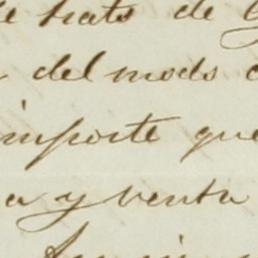 trato de
del modo
importe que
a y venta